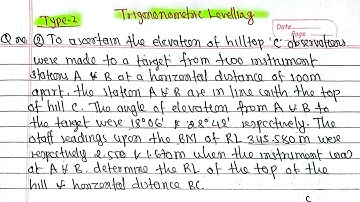 Type-2
Trigonometric Levelling
Date
Page
Que ② To ascertain the elevation of hilltop 'C' observations
were made to a target from two instrument
station A & B at a horizontal distance of 100m
apart. the station A & B are in line with the top
of hill C. The angle of elevation from A & B to
the target were 18°06' & 28°42' respectively. The
staff readings upon the BM of RL 345.580m were
respectively 2.550 & 1.670m when the instrument was
at A & B. determine the RL of the top of the
hill & horizontal distance BC.
C